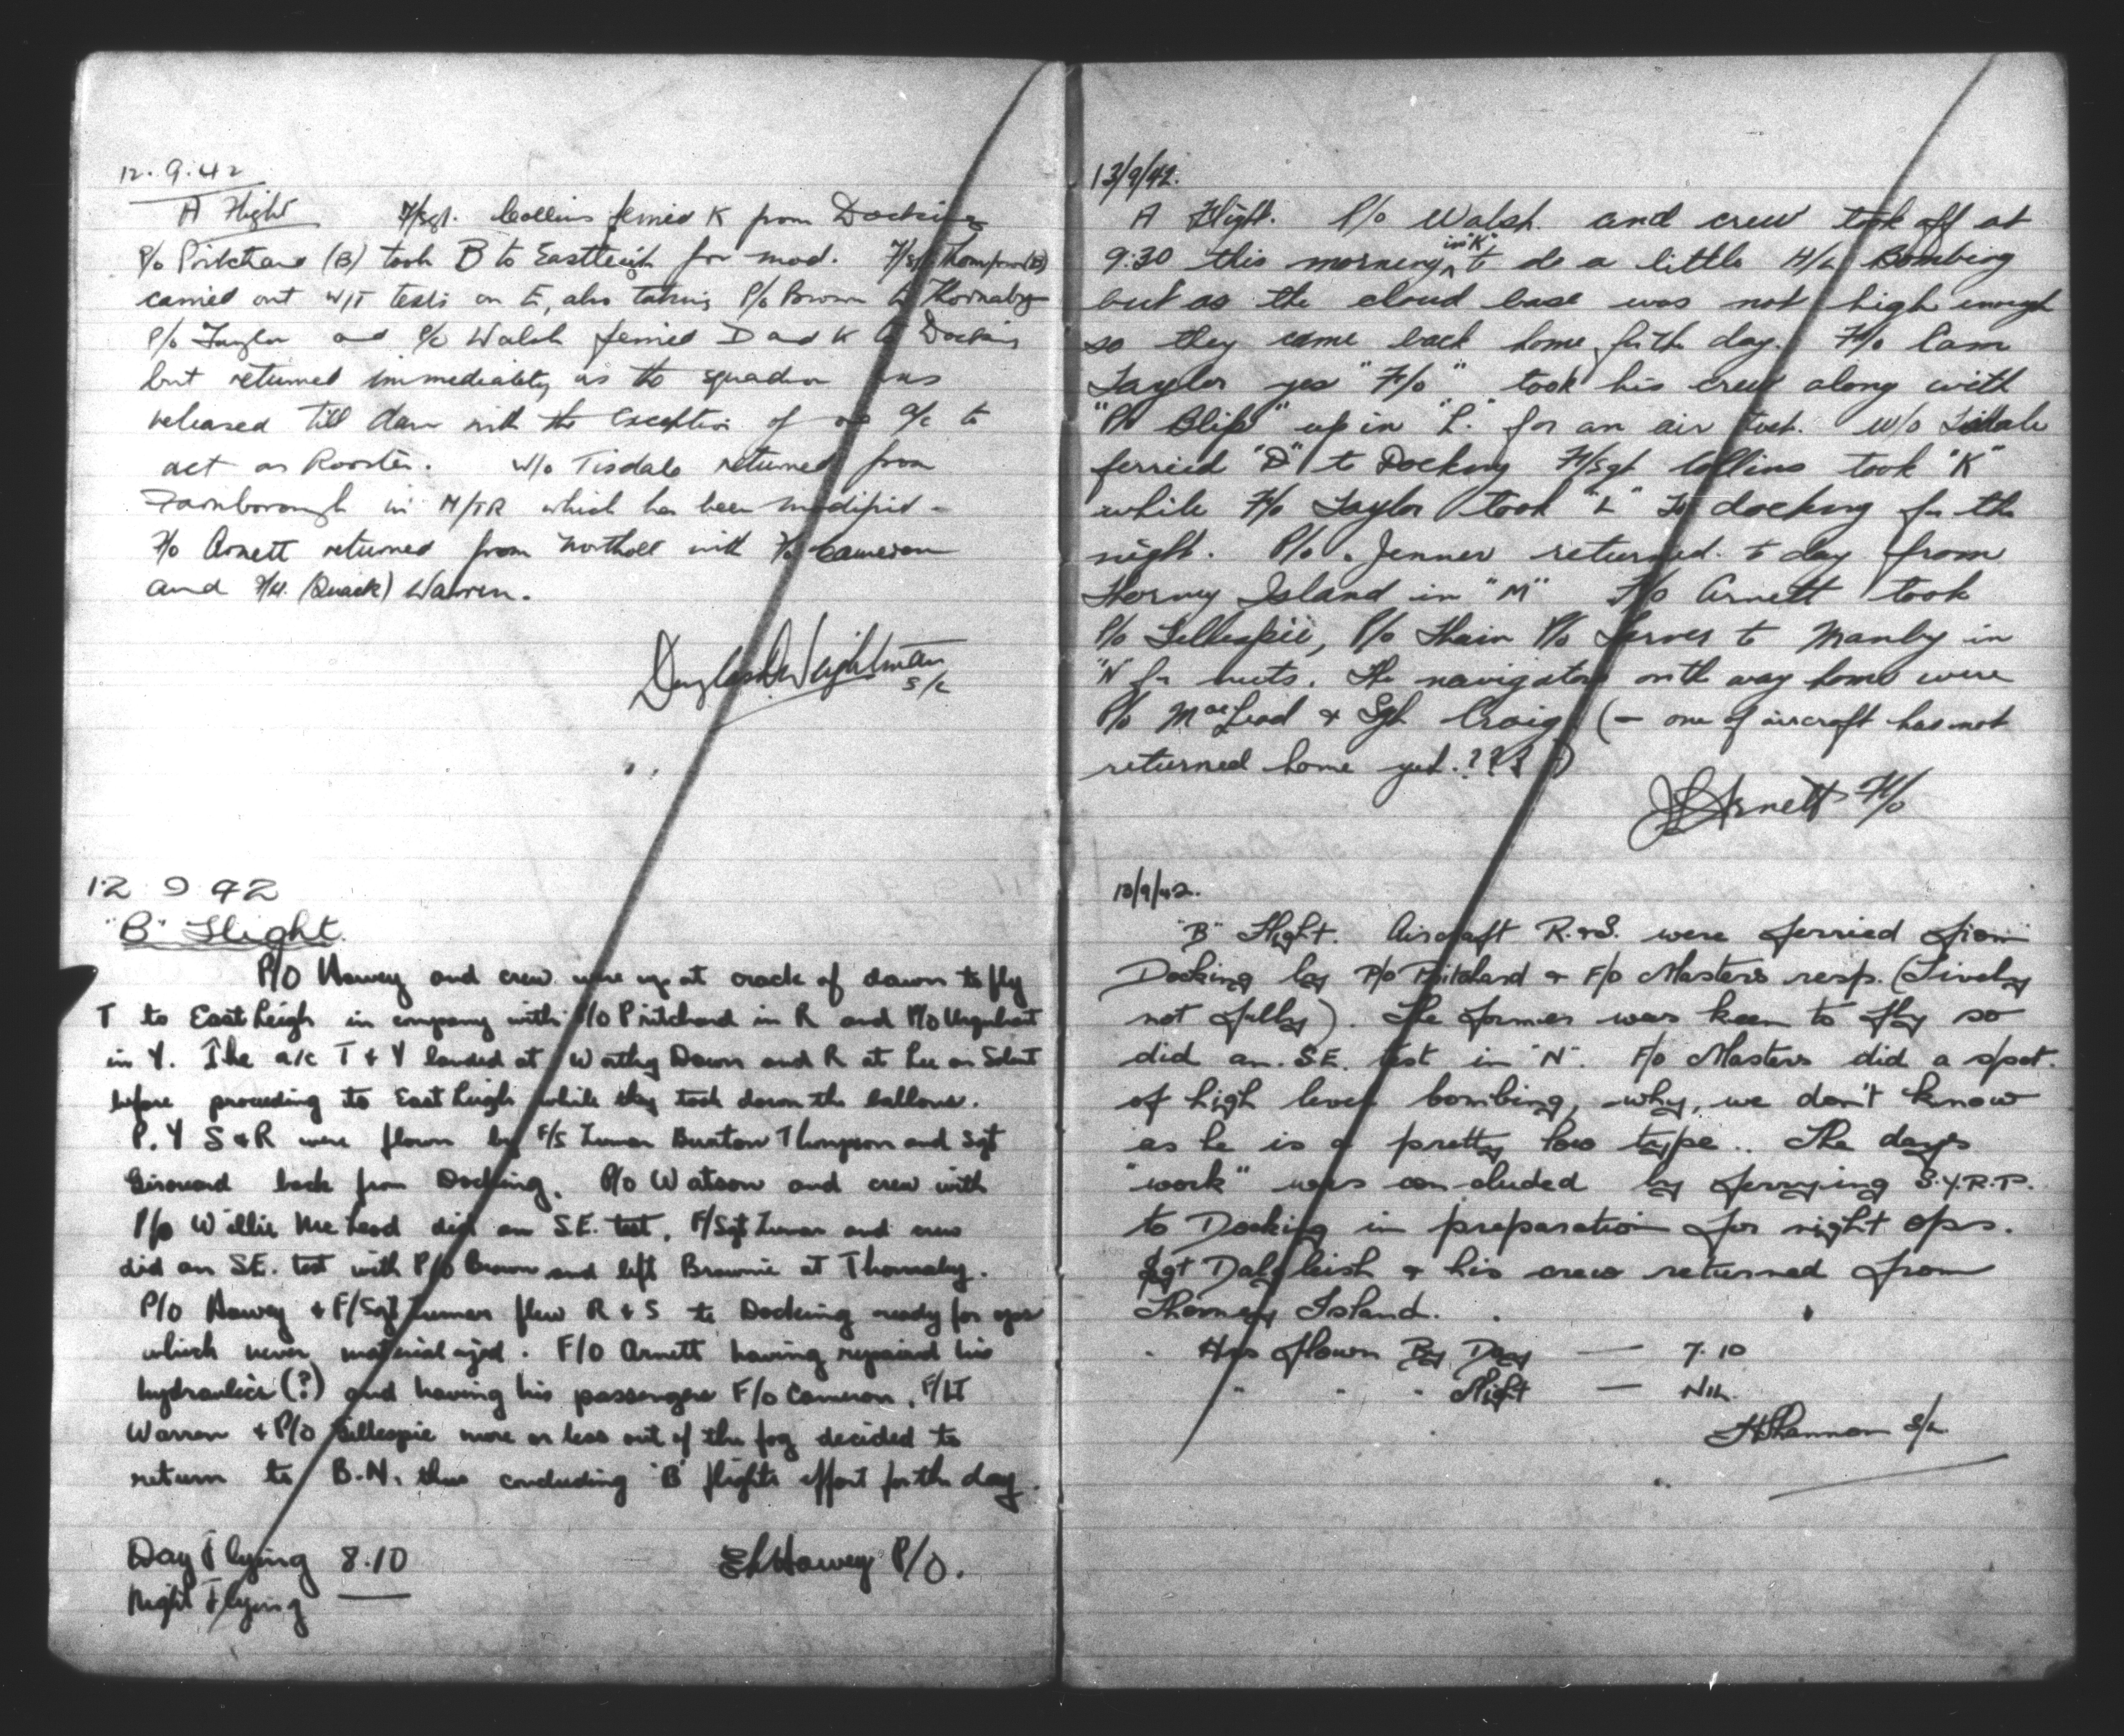 12.9.42
A Flight F/Sgt. Collins ferried K from Docking
P/o Pritchard (B) took B to Eastleigh for mod. F/Sgt Thompson (B)
carried out W/T tests on to, also taking P/o Brown to Thornaby
P/o Taylor and P/o Walsh ferried D and K to Docking
but returned immediately as the squadron was
released till dawn with the exception of one a/c to
act as Rooster. W/o Tisdale returned from
Farnborough in M/TR which has been modified -
F/o Arnett returned from Northolt with F/o Cameron
and F/Lt. (Quack) Warren.
Douglas Weightman
S/L
12 9 42
"B" Flight.
P/O Harvey and crew were up at crack of dawn to fly
T to East Leigh in company with P/O Pritchard in R and P/O Urquhart
in Y. The a/c T & Y landed at Worthy Down and R at Lee on Solent
before proceeding to East Leigh while they took down the balloons.
P. Y S & R were flown by F/S Zuman Burton Thompson and Sgt
Girouard back from Docking. P/O Watson and crew with
P/o Willie McLeod did an S.E. test, F/Sgt Zuman and crew
did an S.E. test with P/O Brown and left Brownie at Thornaby.
P/O Harvey & F/Sgt Zuman flew R & S to Docking ready for ops
which never materialized. F/O Arnett having repaired his
hydraulics (?) and having his passengers F/o Cameron, F/LT
Warren & P/O Gillespie more or less out of the fog decided to
return to B.N. thus concluding 'B' flights effort for the day.
Day Flying 8.10
Night Flying —
Harvey P/O.
13/9/42.
A Flight. P/o Walsh. and crew took off at
9:30 this morning, in "K" to do a little H/L Bombing
but as the cloud base was not high enough
so they came back home for the day. F/o Cam
Taylor yes "F/o" took his crew along with
"P/o Blip" up in "L" for an air test. W/o Tisdale
ferried "D" to Docking F/Sgt Collins took "K"
while F/o Taylor took "L" to docking for the
night. P/o. Jenner returned to day from
Thorney Island in "M" F/o Arnett took
P/o Gillespie, P/o Thain P/o to Manby in
"N" for nuts. The navigators on the way home were
P/o MacLeod & Sgt Craig (— one of aircraft has not
returned home yet. ???)
Arnett F/o
13/9/42.
"B" Flight. Aircraft R. & S. were ferried from
Docking by P/o Pritchard & F/o Masters resp. (Lively
not fully). The former was keen to fly so
did an S.E. test in "N". F/o Masters did a spot
of high level bombing, why, we don't know
as he is a pretty low type.. The days
"work" was concluded by ferrying S.Y.R.P.
to Docking in preparation for night ops.
Sgt Dalgleish & his crew returned from
Thorney Island.
Hrs flown By Day — 7.10
" " " Night — Nil.
Shannon S/L